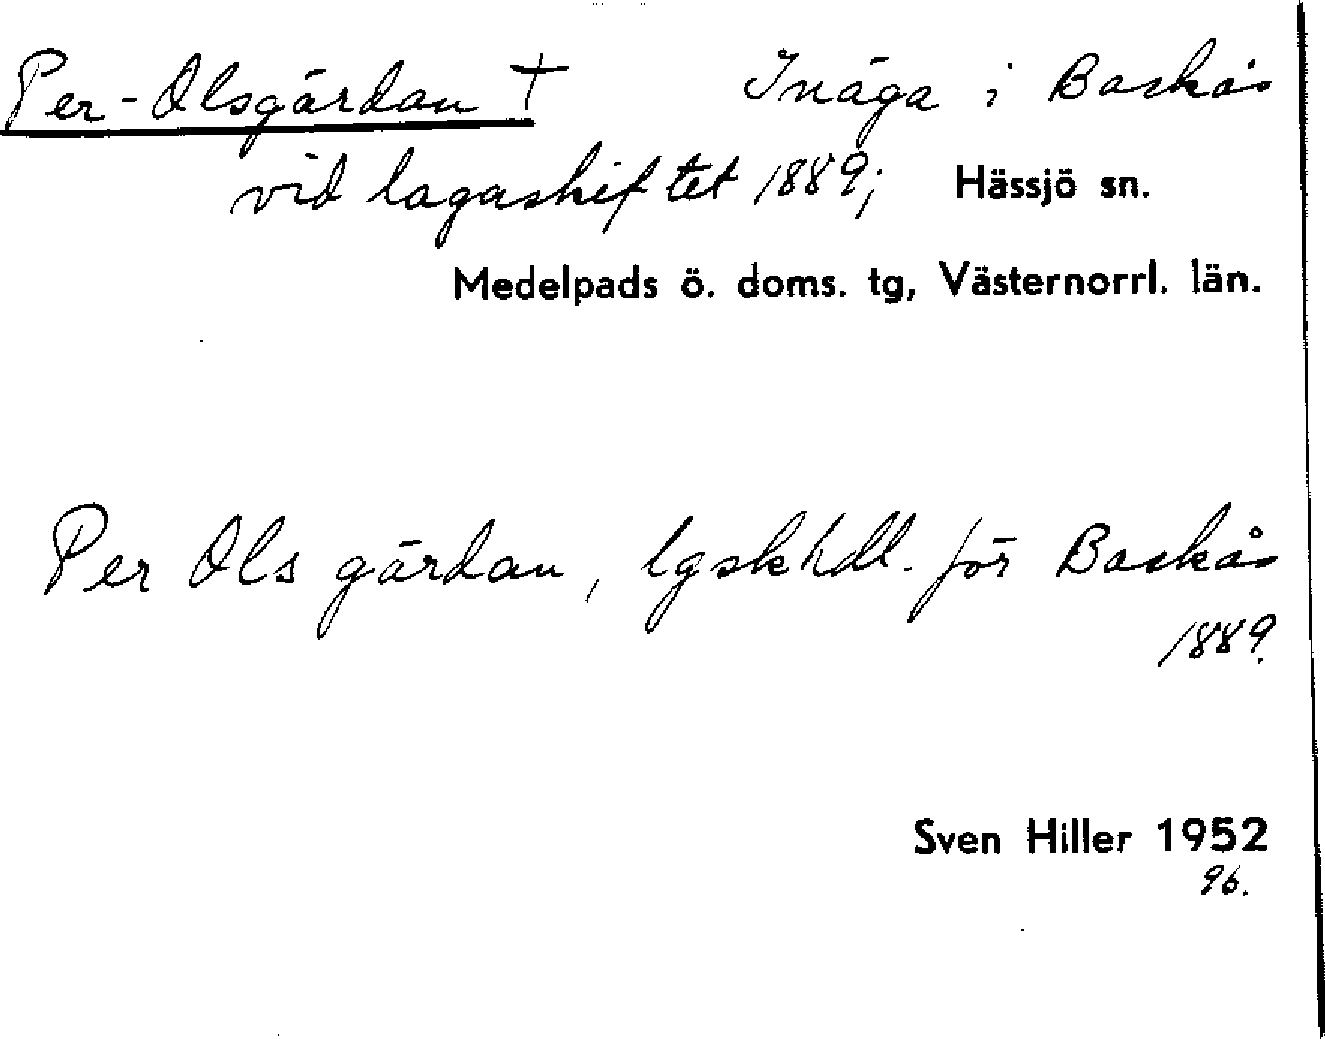 Per-Olsgärdan † Inäga i Baskås
vid lagaskiftet 1889; Hässjö sn.
Medelpads ö. doms. tg, Västernorrl. län.
Per Ols gärdan, lgskhdl. för Baskås
1889.
Sven Hiller 1952
96.